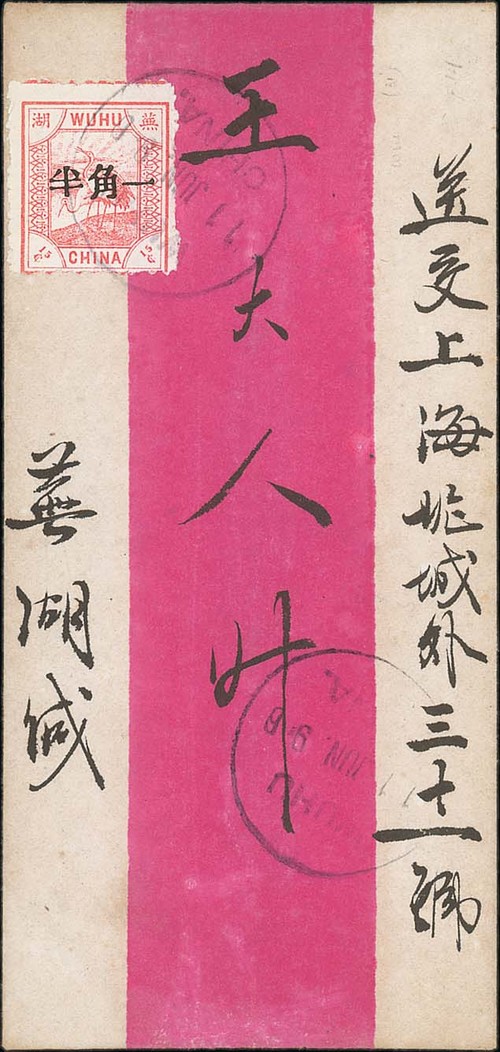 送交上海北城外三十一號
王大人升
蕪湖緘
湖 WUHU 蕪
半角一
15 CHINA 15
11 JUN
WUHU
11 JUN 96